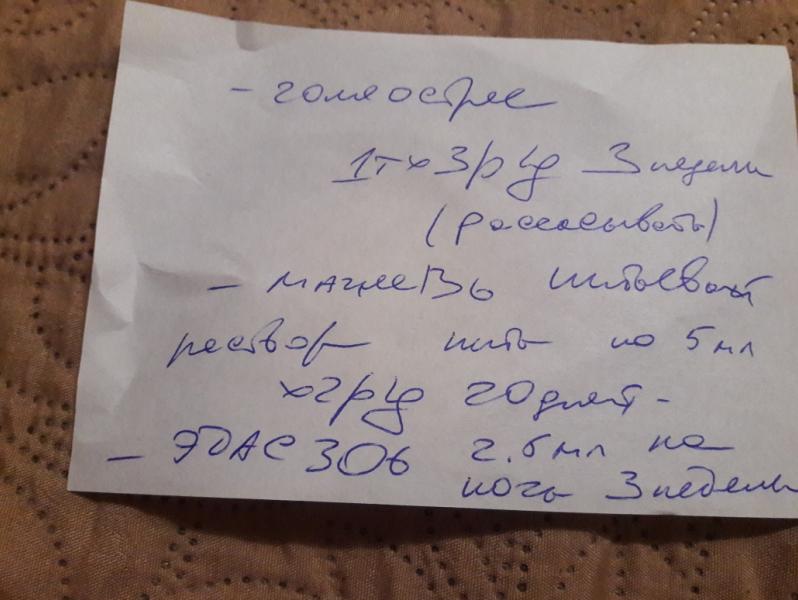 - гомеострес
1т х 3р/д 3 недели
(рассасывать)
- магнеB6 питьевой
раствор пить по 5 мл
х2р/д 20 дней -
- ЭДАС 306 2.5 мл на
ночь 3 недели